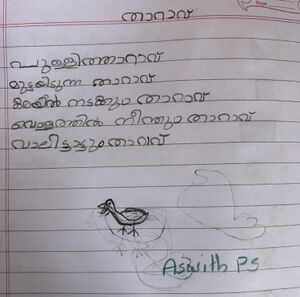 താറാവ്
പുള്ളിത്താറാവ്
മുട്ടയിടുന്ന താറാവ്
കരയിൽ നടക്കും താറാവ്
വെള്ളത്തിൽ നീന്തും താറാവ്
വാലിട്ടാട്ടും താറാവ്
Aswith PS